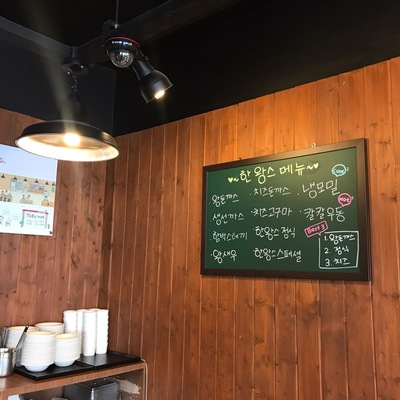 ~♥한왕스 메뉴♥~
왕돈까스 ·치즈돈까스 ·냉모밀 Cool
생선까스 ·치즈고구마 칼칼우동 Hot
함박스테끼 ·한왕스정식
·왕새우 ·한왕스스페셜
Best 3
1. 왕돈까스
2. 정식
3. 치즈